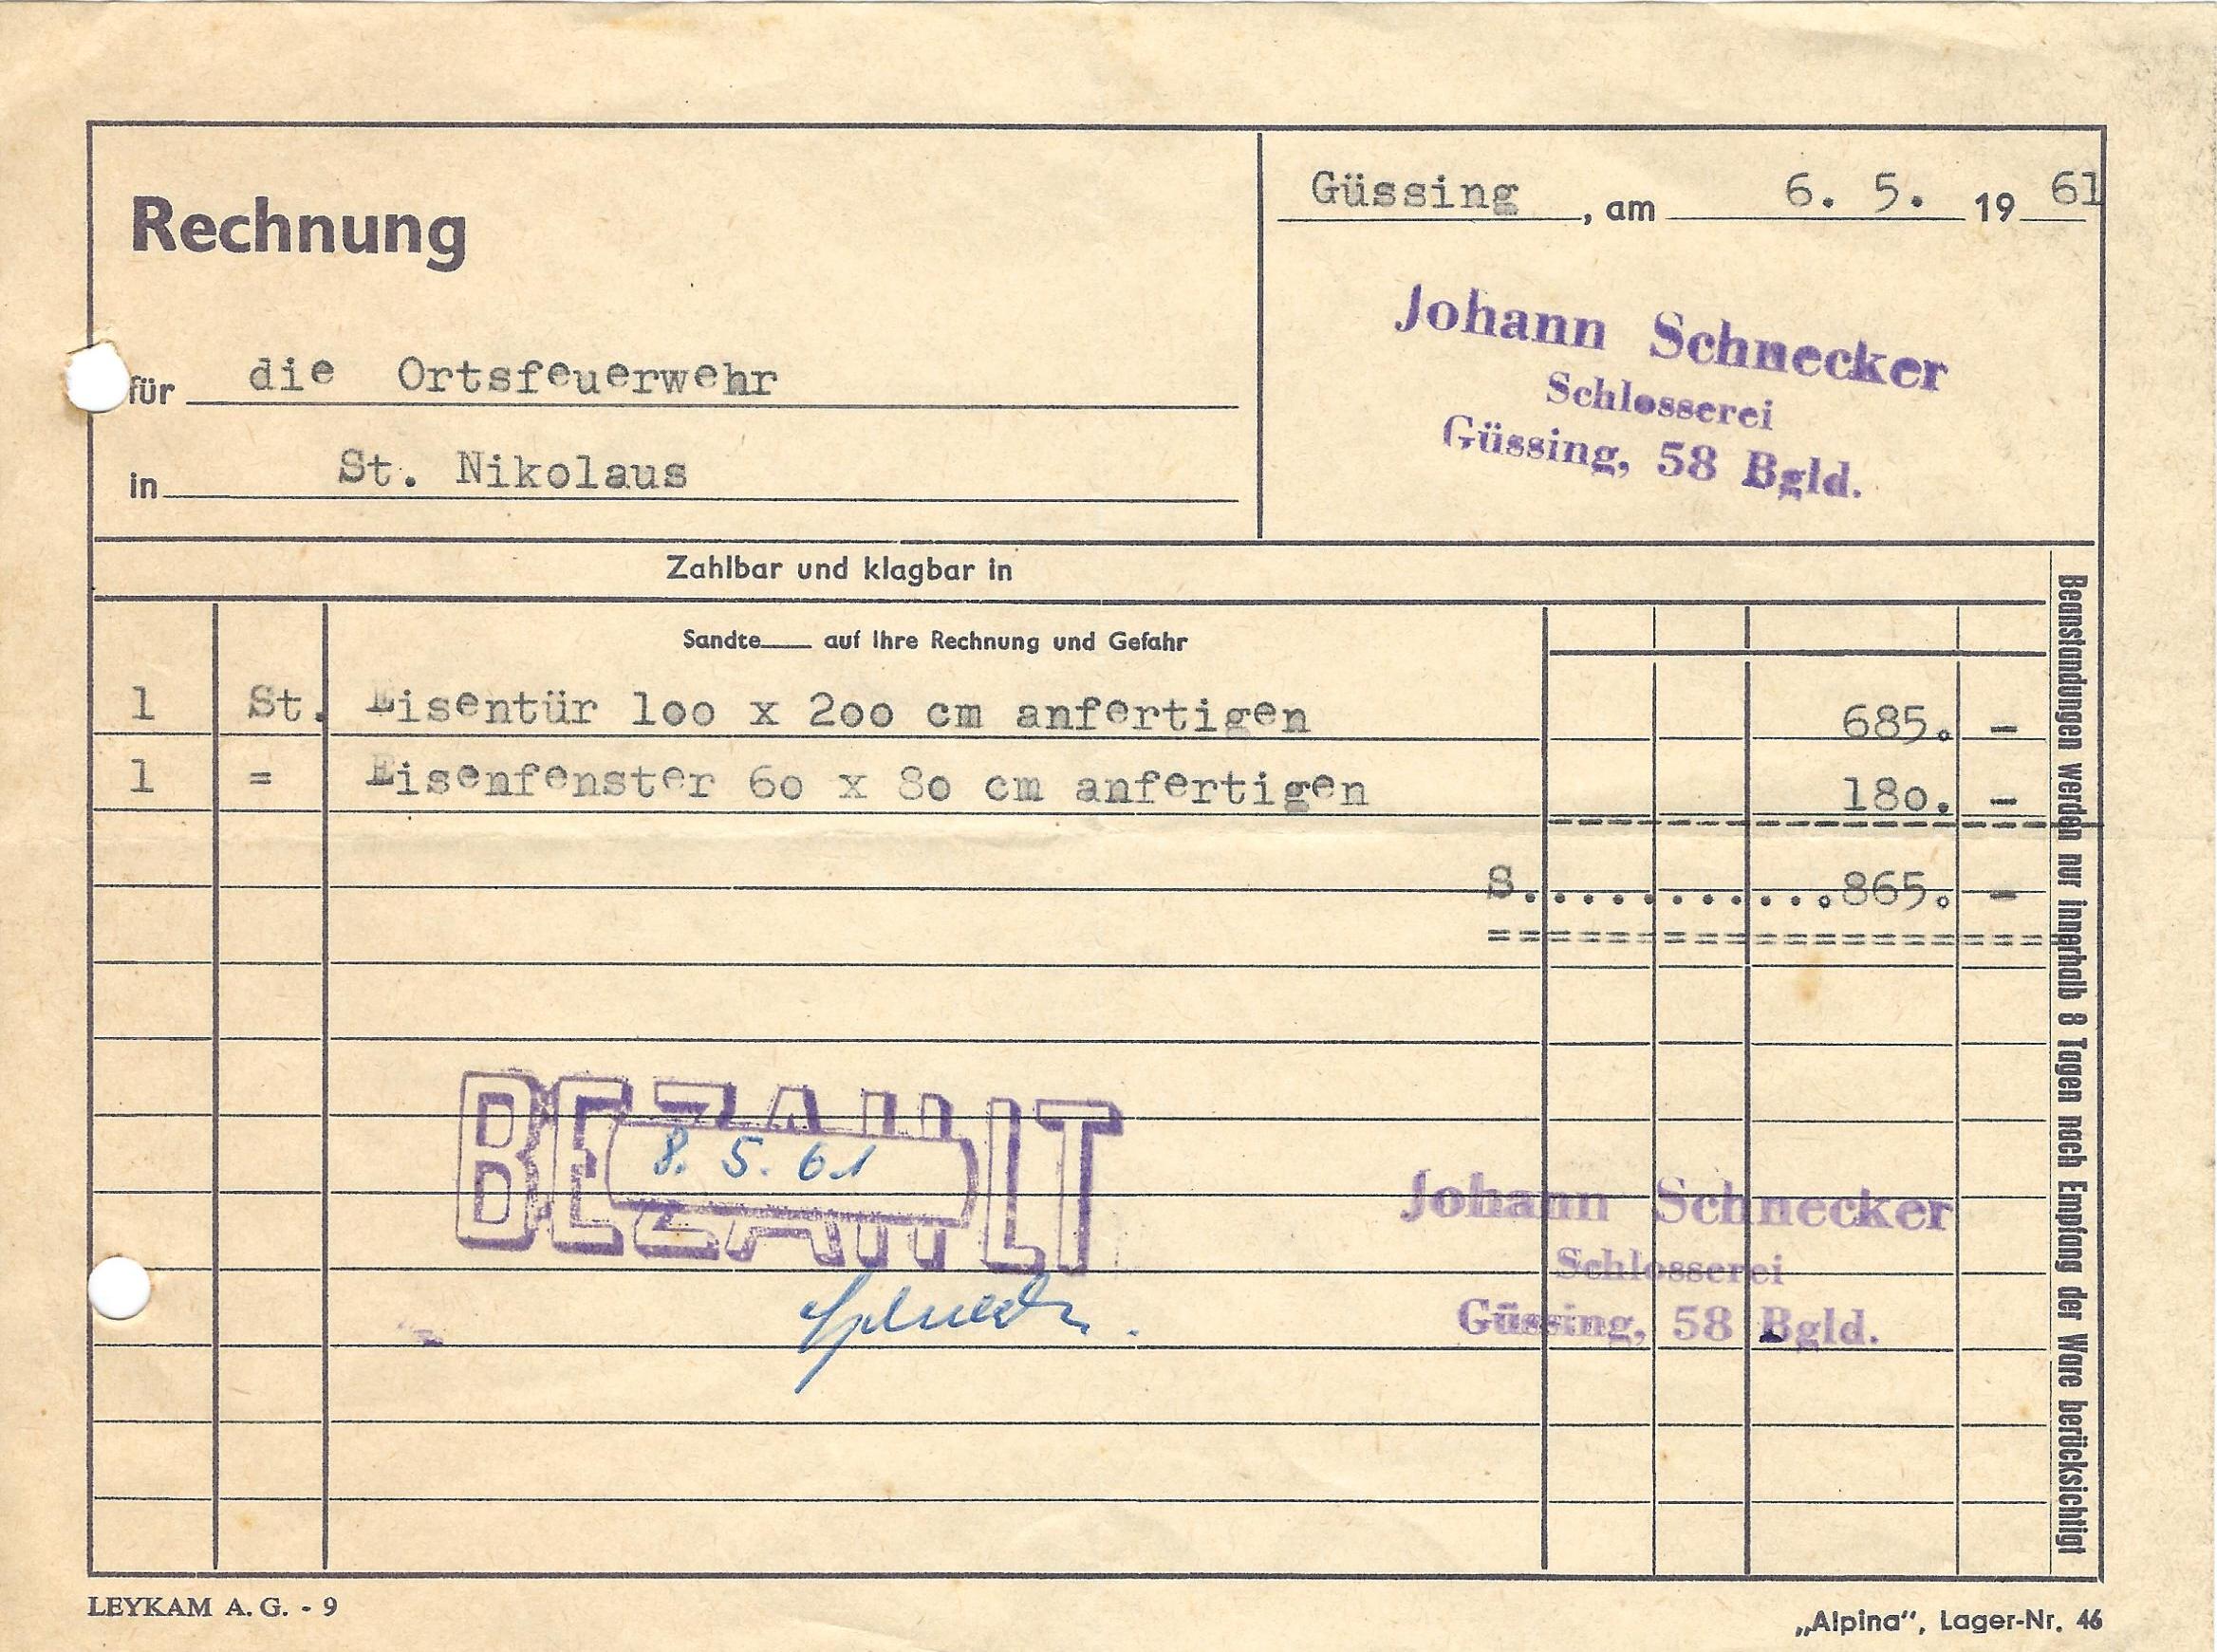 Rechnung
Güssing, am 6. 5. 1961
Johann Schnecker
Schlosserei
Güssing, 58 Bgld.
für die Ortsfeuerwehr
in St. Nikolaus
Zahlbar und klagbar in
Sandte___ auf Ihre Rechnung und Gefahr
1 St. Eisentür 1oo x 2oo cm anfertigen 685. -
1 = Eisenfenster 6o x 8o cm anfertigen 18o. -
S............865. -
===================
BEZAHLT
8. 5. 61
Johann Schnecker
Schlosserei
Güssing, 58 Bgld.
Beanstandungen werden nur innerhalb 8 Tagen nach Empfang der Ware berücksichtigt
LEYKAM A. G. - 9
„Alpina“, Lager-Nr. 46